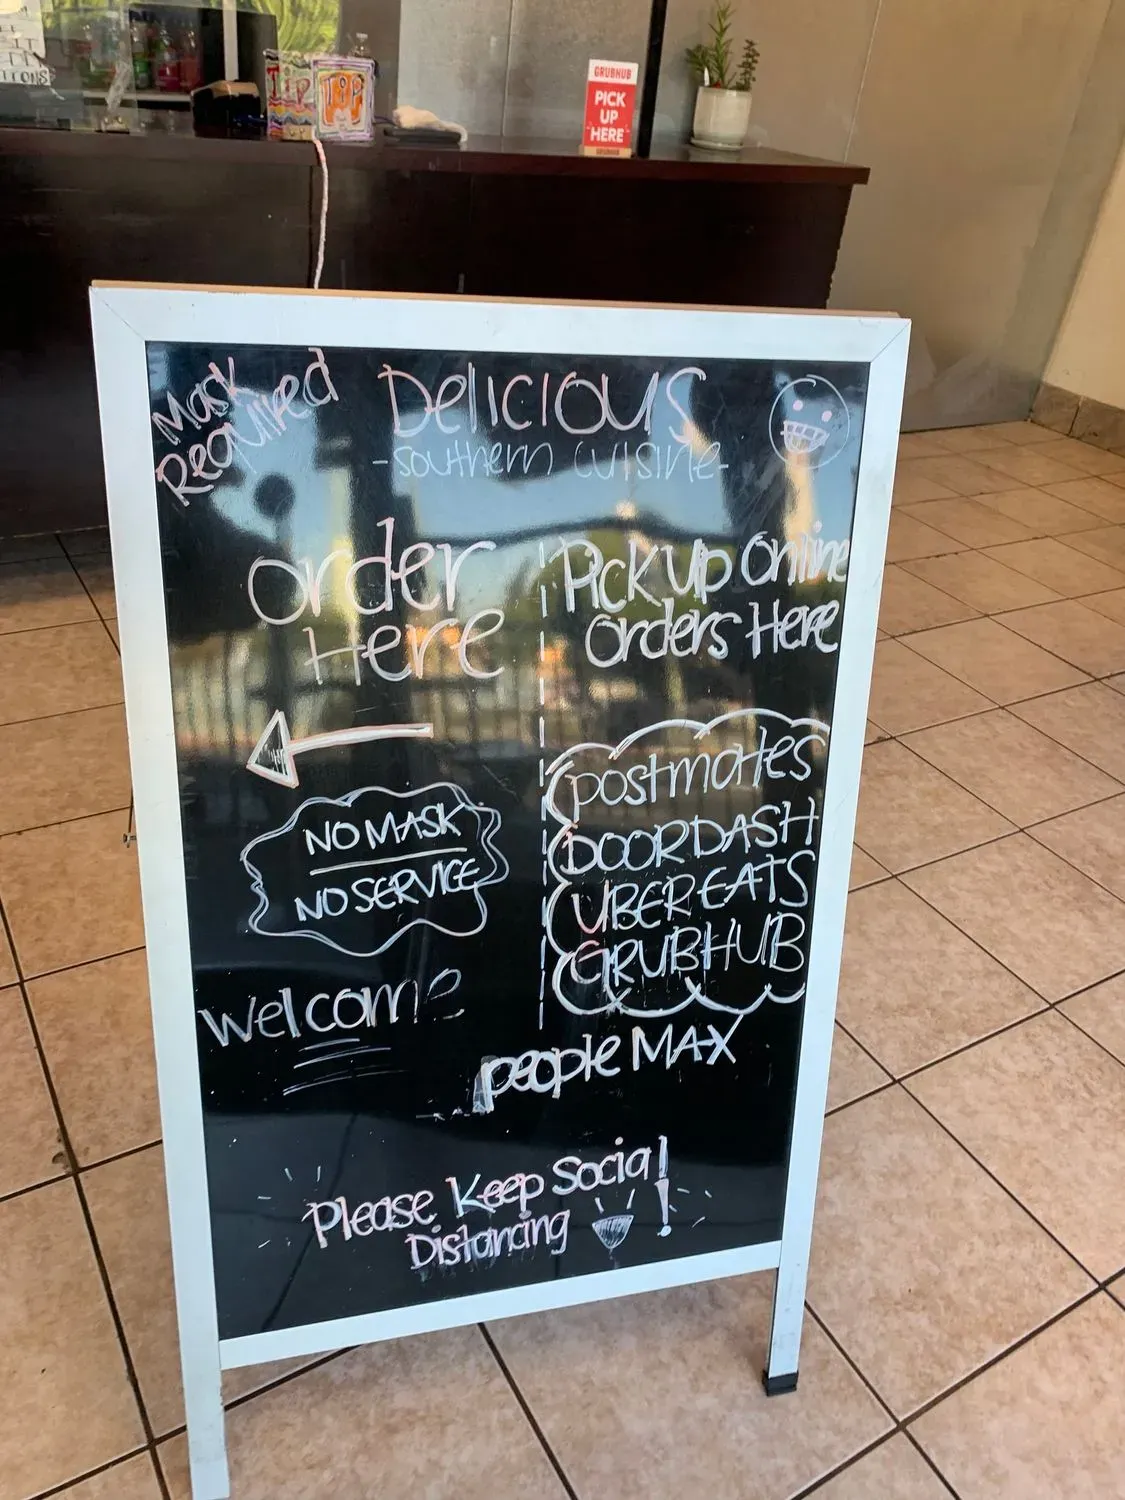 TIP
GRUBHUB
PICK
UP
HERE
GRUBHUB
Mask
Required
Delicious
-southern cuisine-
order
Here
Pick up online
orders Here
NO MASK
NO SERVICE
postmates
DOORDASH
UBER EATS
GRUBHUB
welcome
people MAX
Please Keep Social
Distancing !